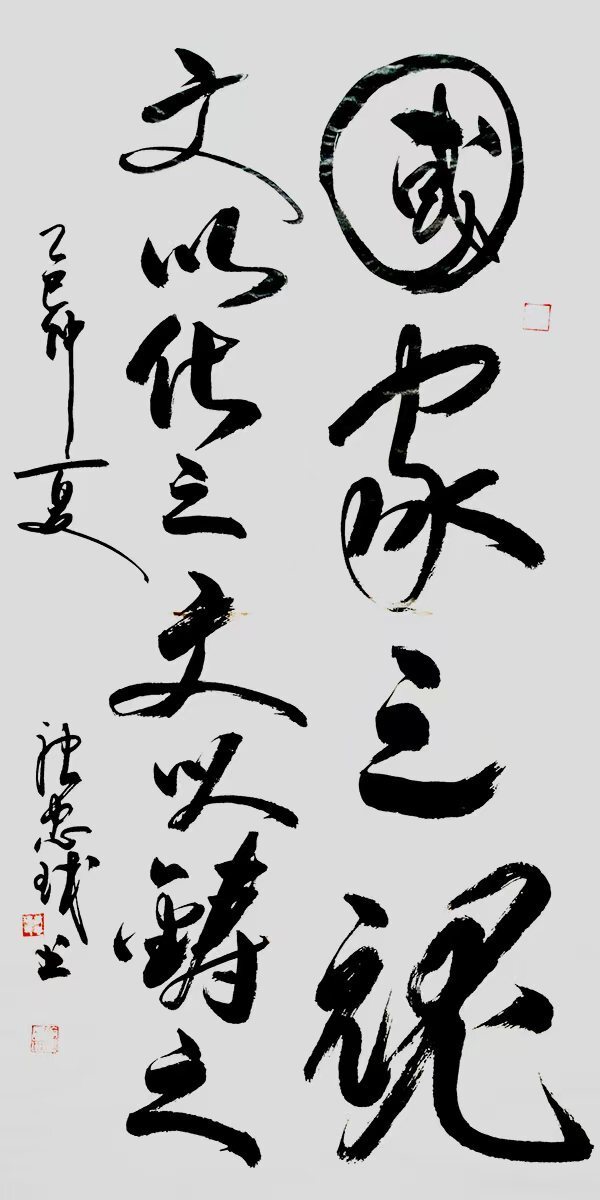 國家之魂
文以化之文以鑄之
乙巳仲夏
張忠球书